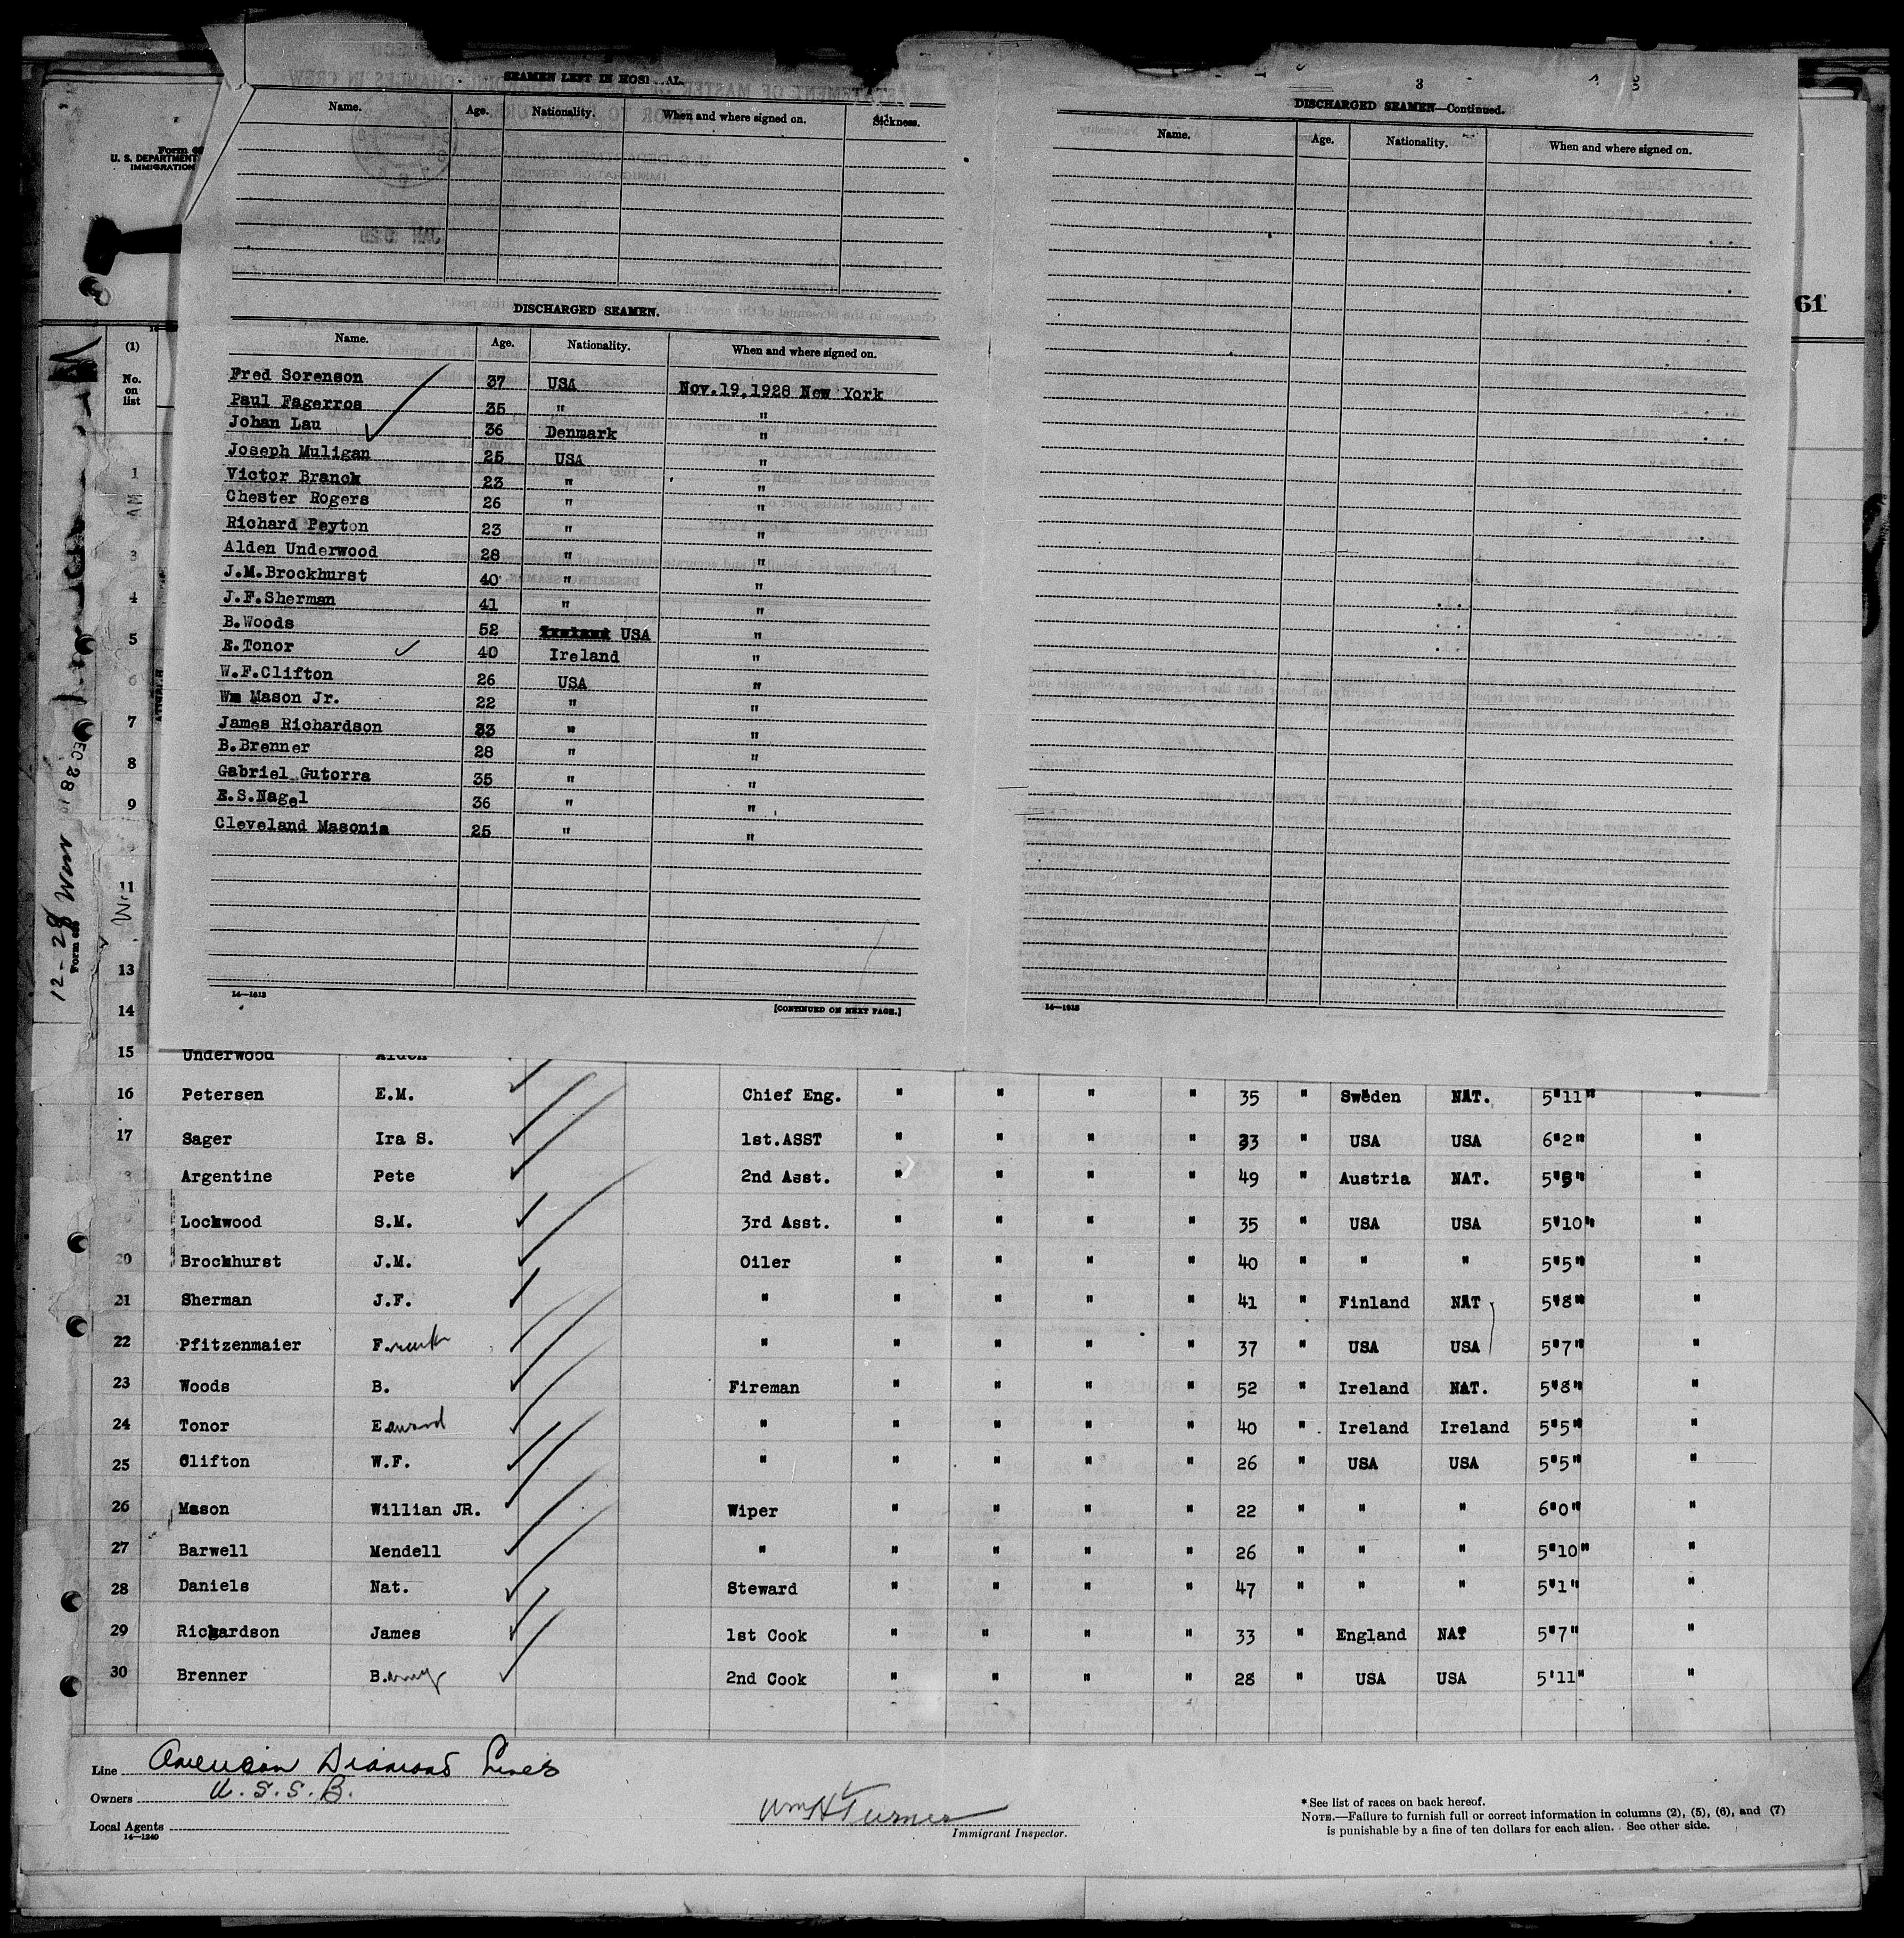 SEAMEN LEFT IN HOSI AL.
Name. Age. Nationality. When and where signed on. Sickness.
DISCHARGED SEAMEN.
Name. Age. Nationality. When and where signed on.
Fred Sorenson 37 USA Nov.19,1928 New York
Paul Fagerros 35 " "
Johan Lau 36 Denmark "
Joseph Muligan 25 USA "
Victor Branck 23 " "
Chester Rogers 26 " "
Richard Peyton 23 " "
Alden Underwood 28 " "
J.M.Brockhurst 40 " "
J.F.Sherman 41 " "
B.Woods 52 Ireland USA "
E.Tonor 40 Ireland "
W.F.Clifton 26 USA "
Wm Mason Jr. 22 " "
James Richardson 33 " "
B.Brenner 28 " "
Gabriel Gutorra 35 " "
E.S.Nagel 36 " "
Cleveland Masonia 25 " "
14—1612
[CONTINUED ON NEXT PAGE.]
3
DISCHARGED SEAMEN—Continued.
Name. Age. Nationality. When and where signed on.
14—1612
Form 68
U. S. DEPARTMENT
IMMIGRATION
61
(1)
No. on list
1
3
4
5
6
7
8
9
11
13
14
12-28
15 Underwood Alden
16 Petersen E.M. Chief Eng. " " " " 35 " Sweden NAT. 5"11" "
17 Sager Ira S. 1st.ASST " " " " 33 " USA USA 6"2" "
Argentine Pete 2nd Asst. " " " " 49 " Austria NAT. 5"5" "
Lockwood S.M. 3rd Asst. " " " " 35 " USA USA 5"10" "
20 Brockhurst J.M. Oiler " " " " 40 " " " 5"5" "
21 Sherman J.F. " " " " " 41 " Finland NAT 5"8" "
22 Pfitzenmaier Frank " " " " " 37 " USA USA 5"7" "
23 Woods B. Fireman " " " " 52 " Ireland NAT. 5"8" "
24 Tonor Edward " " " " " 40 " Ireland Ireland 5"5" "
25 Clifton W.F. " " " " " 26 " USA USA 5"5" "
26 Mason Willian JR. Wiper " " " " 22 " " " 6"0" "
27 Barwell Mendell " " " " " 26 " " " 5"10" "
28 Daniels Nat. Steward " " " " 47 " " " 5"1" "
29 Richardson James 1st Cook " " " 33 " England NAT 5"7" "
30 Brenner B. 2nd Cook " " " " 28 " USA USA 5'11" "
Line American Diamond Lines
Owners U.S.S.B.
Local Agents
14—1240
Wm H Turner
Immigrant Inspector.
* See list of races on back hereof.
NOTE.—Failure to furnish full or correct information in columns (2), (5), (6), and (7)
is punishable by a fine of ten dollars for each alien. See other side.